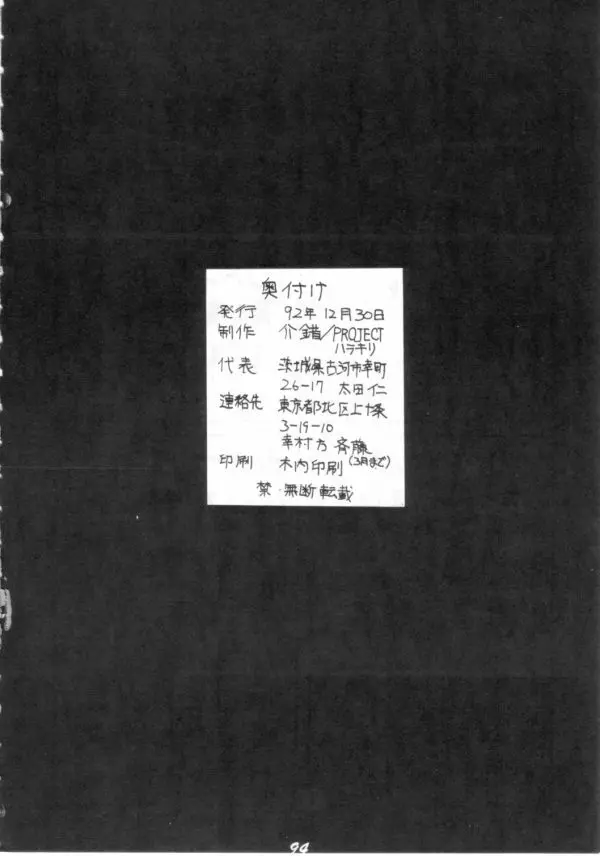 奥付け
発行 92年12月30日
制作 介錯/PROJECT
ハラキリ
代表 茨城県古河市幸町
26-17 太田仁
連絡先 東京都北区上十条
3-19-10
幸村方 斉藤
印刷 木内印刷(3月まで)
禁・無断転載
94